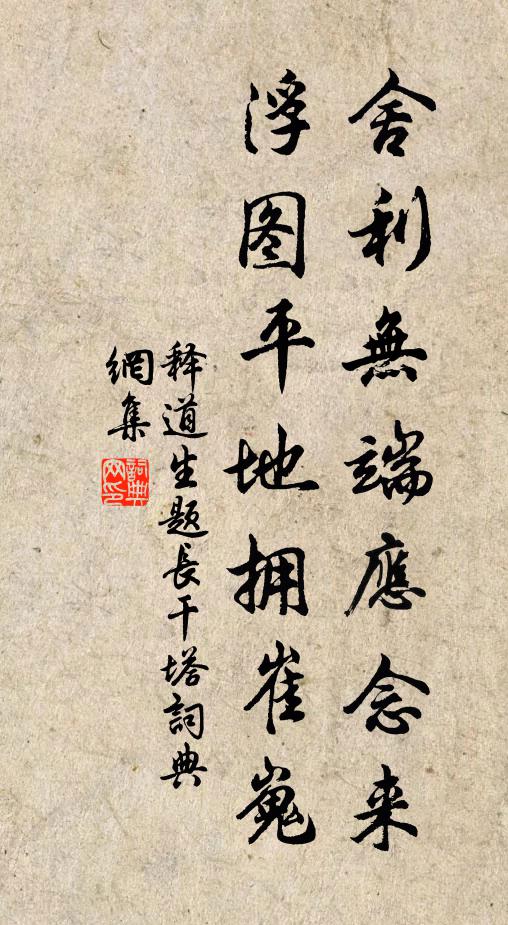 舍利無端應念来
浮图平地拥崔嵬
释道生题長干塔詞典
網集
詞典网印